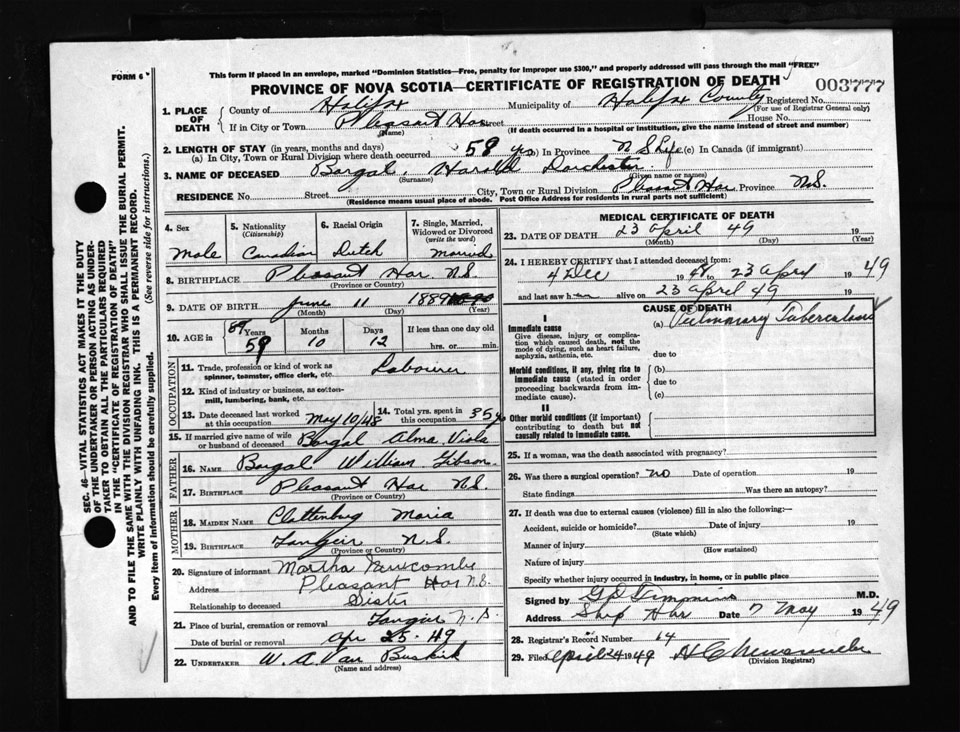 This form if placed in an envelope, marked "Dominion Statistics—Free, penalty for improper use $300," and properly addressed will pass through the mail "FREE"
FORM 6
PROVINCE OF NOVA SCOTIA—CERTIFICATE OF REGISTRATION OF DEATH
003777
1. PLACE OF DEATH
County of Halifax Municipality of Halifax County Registered No.
(For use of Registrar General only)
If in City or Town Pleasant Har Street House No.
(Name) (If death occurred in a hospital or institution, give the name instead of street and number)
2. LENGTH OF STAY (in years, months and days)
(a) In City, Town or Rural Division where death occurred 59 yrs (b) In Province N S Life (c) In Canada (if immigrant)
3. NAME OF DECEASED Borgal, Harold Dorchester
(Surname) (Given name or names)
RESIDENCE No. Street City, Town or Rural Division Pleasant Har Province N.S.
(Residence means usual place of abode. Post Office Address for residents in rural parts not sufficient)
4. Sex Male
5. Nationality (Citizenship) Canadian
6. Racial Origin Dutch
7. Single, Married, Widowed or Divorced (write the word) Married
8. BIRTHPLACE Pleasant Har. N.S.
(Province or Country)
9. DATE OF BIRTH June 11 1889
(Month) (Day) (Year)
10. AGE in 59 Years 10 Months 12 Days If less than one day old
hrs. or min.
OCCUPATION
11. Trade, profession or kind of work as spinner, teamster, office clerk, etc. Labourer
12. Kind of industry or business, as cotton-mill, lumbering, bank, etc.
13. Date deceased last worked at this occupation May 10/48
14. Total yrs. spent in this occupation 35 yrs
15. If married give name of wife or husband of deceased Borgal Alma Viola
FATHER
16. NAME Borgal William Gibson
17. BIRTHPLACE Pleasant Har N.S.
(Province or Country)
MOTHER
18. MAIDEN NAME Clattenburg Maria
19. BIRTHPLACE Tangier N.S.
(Province or Country)
20. Signature of informant Martha Newcombe
Address Pleasant Har N.S.
Relationship to deceased Sister
21. Place of burial, cremation or removal Tangier N.S.
Date of burial or removal Apr 25-49
22. UNDERTAKER W. A. Van Buskirk
(Name and address)
MEDICAL CERTIFICATE OF DEATH
23. DATE OF DEATH 23 April 49 19
(Month) (Day) (Year)
24. I HEREBY CERTIFY that I attended deceased from:
4 Dec 1948 to 23 April 1949
and last saw him alive on 23 April 49 19
CAUSE OF DEATH
I
Immediate cause
Give disease, injury or complication which caused death, not the mode of dying, such as heart failure, asphyxia, asthenia, etc.
(a) Pulmonary Tuberculosis
due to
Morbid conditions, if any, giving rise to immediate cause (stated in order proceeding backwards from immediate cause).
(b)
due to
(c)
II
Other morbid conditions (if important) contributing to death but not causally related to immediate cause.
25. If a woman, was the death associated with pregnancy?
26. Was there a surgical operation? no Date of operation 19
State findings Was there an autopsy?
27. If death was due to external causes (violence) fill in also the following:—
Accident, suicide or homicide? Date of injury 19
(State which)
Manner of injury
(How sustained)
Nature of injury
Specify whether injury occurred in industry, in home, or in public place
Signed by G D Timmins M.D.
Address Ship Har Date 7 May 1949
28. Registrar's Record Number 64
29. Filed April 24 1949
(Division Registrar)
SEC. 46—VITAL STATISTICS ACT MAKES IT THE DUTY
OF THE UNDERTAKER OR PERSON ACTING AS UNDER-
TAKER TO OBTAIN ALL THE PARTICULARS REQUIRED
IN THE "CERTIFICATE OF REGISTRATION OF DEATH"
AND TO FILE THE SAME WITH THE DIVISION REGISTRAR WHO SHALL ISSUE THE BURIAL PERMIT.
WRITE PLAINLY WITH UNFADING INK. THIS IS A PERMANENT RECORD.
Every item of information should be carefully supplied. (See reverse side for instructions.)